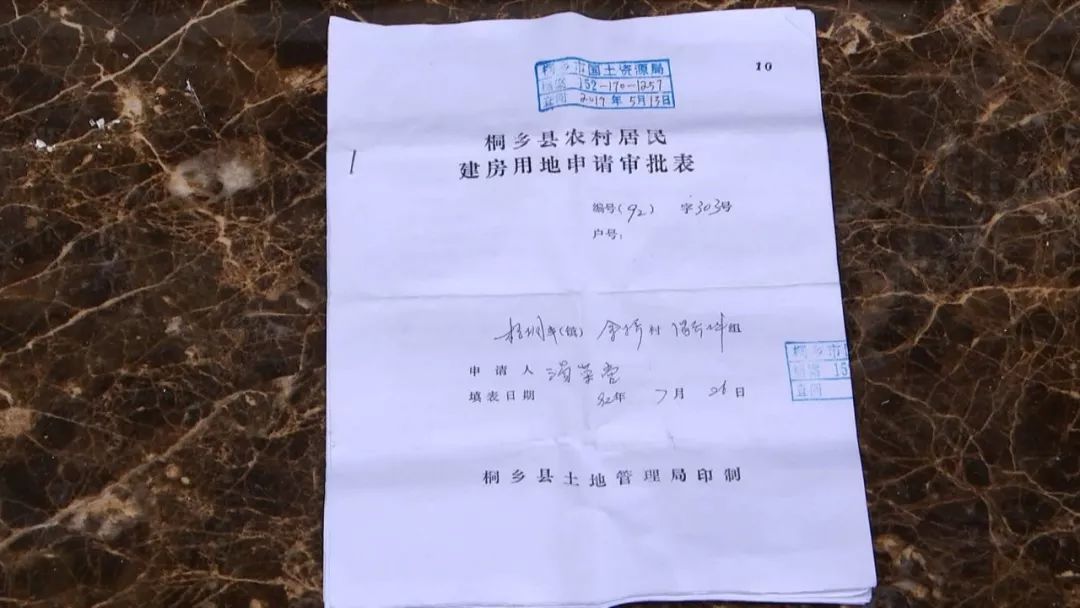 10
桐乡市国土资源局
档案 152-170-1257
查阅 2019年5月15日
桐乡县农村居民
建房用地申请审批表
编号(92) 字303号
户号:
梧桐乡(镇) 村 组
申请人
填表日期 92年 7月 26日
桐乡市
档案 15
查阅
桐乡县土地管理局印制